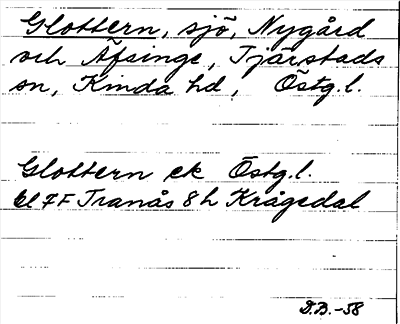 Glottern, sjö, Nygård
och Äfsinge, Tjärstads
sn, Kinda hd, Östg.l.
Glottern ek Östg.l.
7F Tranås 8h Krågedal
D.B.-58